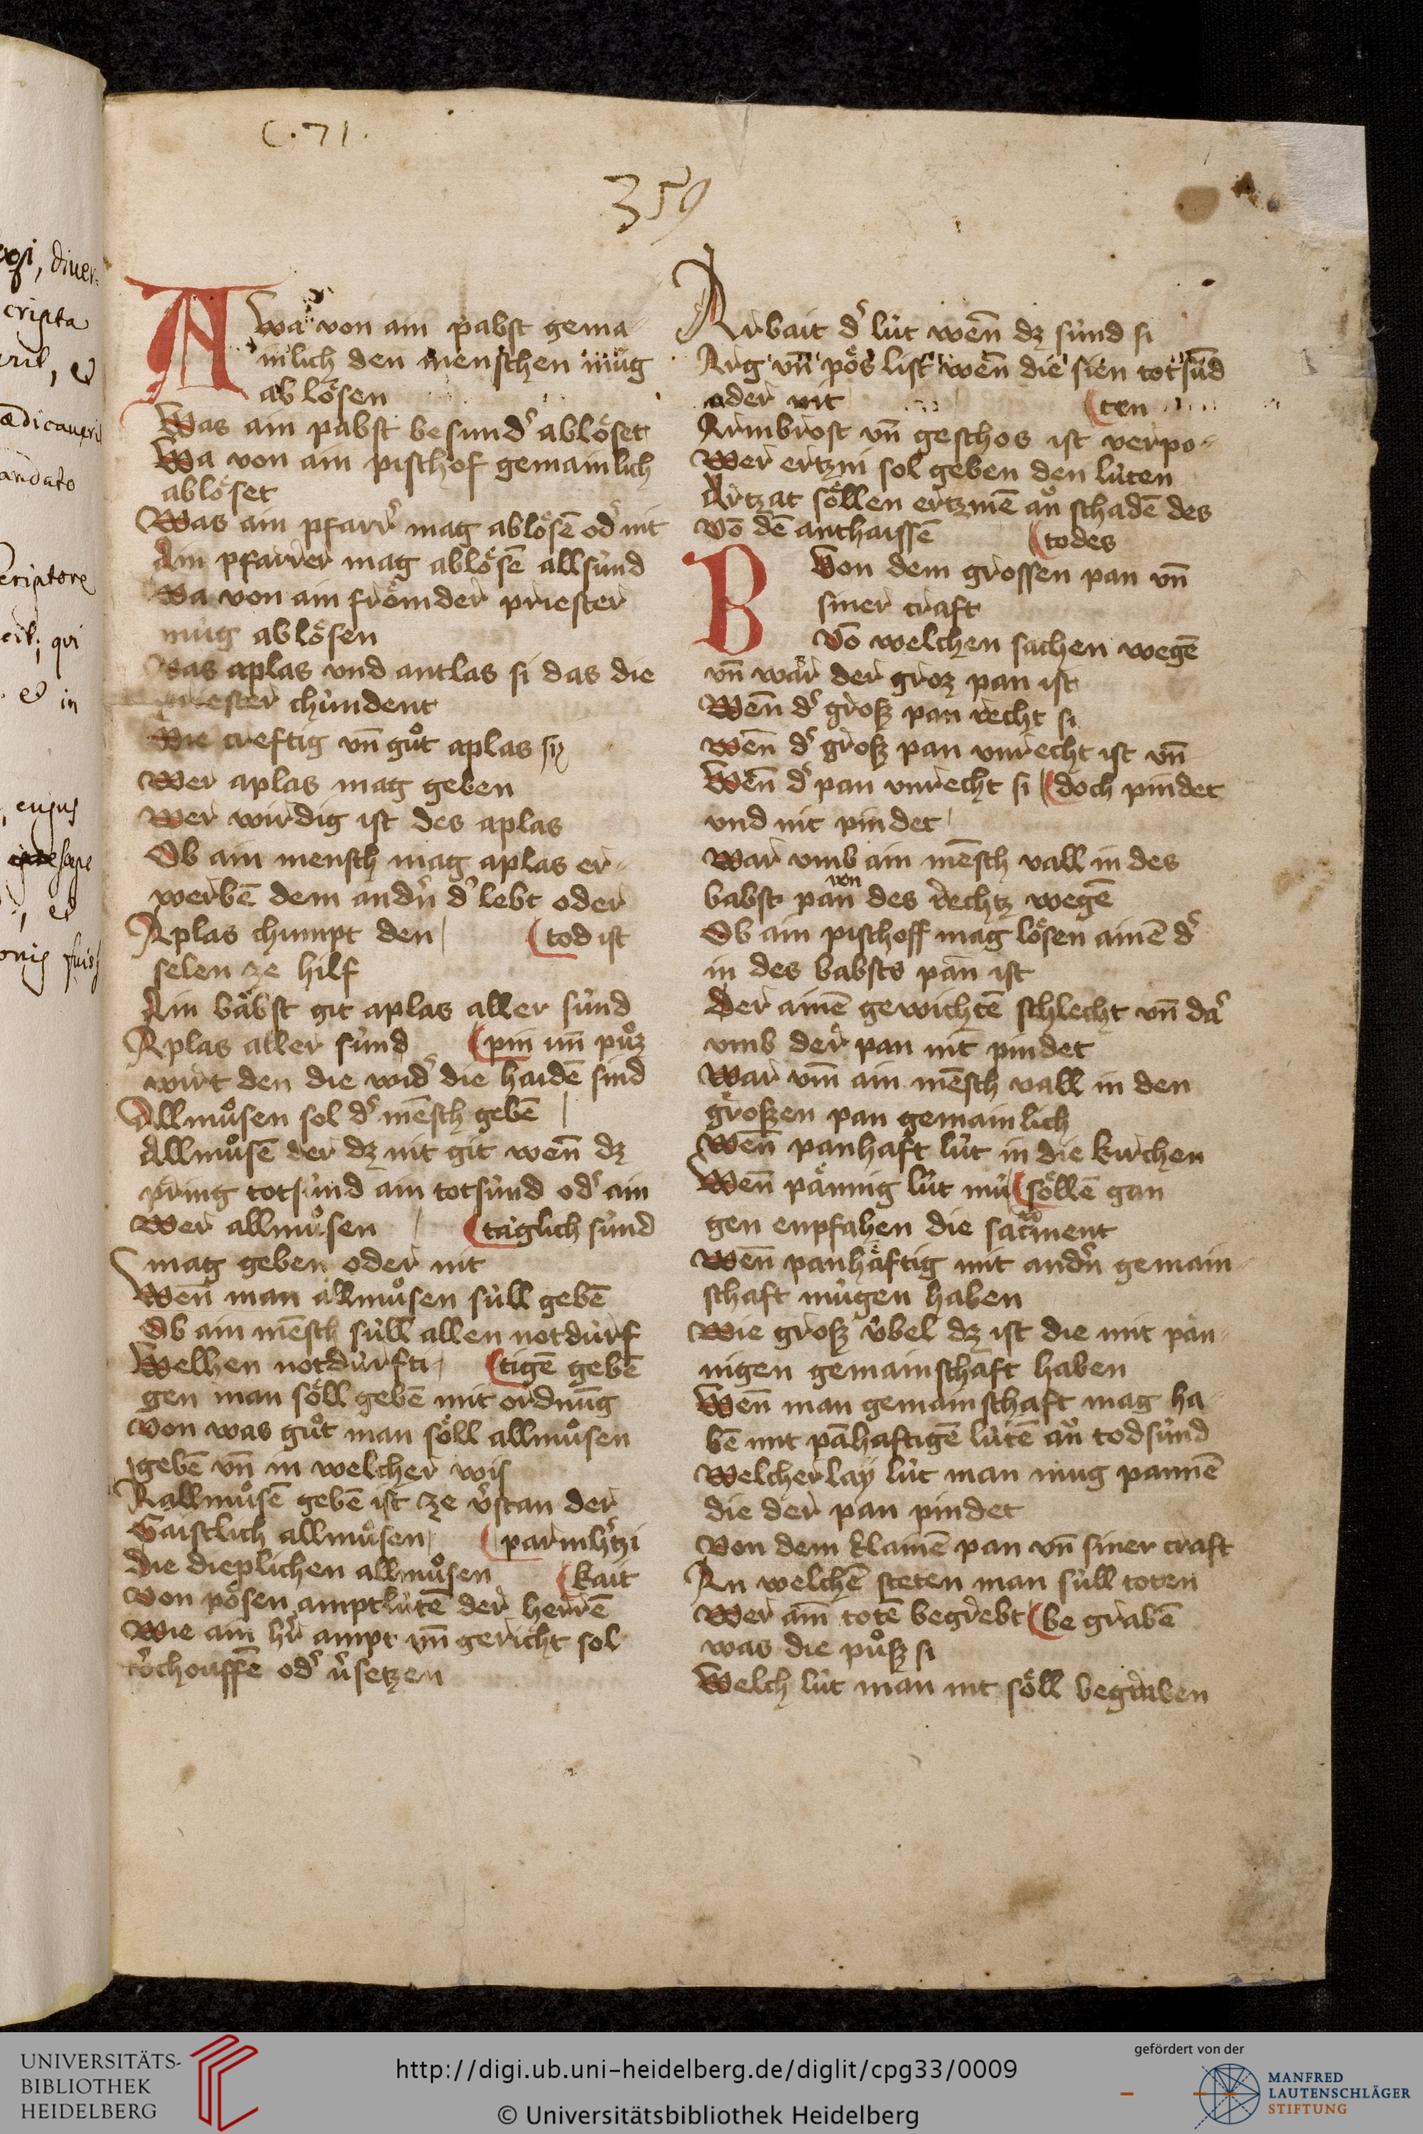 C. 71.
359
A
Wa von ain pabst gema
inlich den menschen müg
ab lösen
Was ain pabst besundˀ ablöset
Wa von ain pischof gemainlich
ablöset
Was ain pfarrˀ mag ablösē odˀ nit
Ain pfarrer mag ablösē all sünd
Wa von ain frömder priester
müg ablösen
Was aplas vnd antlas si das die
priester chündent
Wie creftig vn̄ gůt aplas sy
Wer aplas mag geben
Wer wirdig ist des aplas
Ob ain mensch mag aplas er-
werbē dem andˀn dˀ lebt oder
Aplas chumpt den (tod ist
selen ze hilf
Ain bäbst git aplas aller sünd
Aplas aller sünd (pin vn̄ půz
wirt den die widˀ die haidē sind
Allmůsen sol dˀ mēsch gebē
Allmůsē der dz nit git wen̄ dz
pring totsünd ain totsünd odˀ ain
Wer allmůsen (täglich sünd
mag geben oder nit
Wen̄ man allmůsen süll gebē
Ob ain mēsch süll allen notdürf
Welhen notdürfti- (tigē gebē
gen man söll gebē mit ordnūg
Von was gůt man söll allmůsen
gebē vn̄ in welcher wis
Allmůsē gebē ist ze v̉stan der
Gaistlich allmůsen (parmhˀtzi
Die dieplichen allmůsen (kait
Von pösen amptlütē der herrē
Wie ain hˀr ampt vn̄ gericht sol
v̉chouffē odˀ v̉setzen
Arbait dˀ lüt wen̄ dz sünd si
Arg vn̄ pös list wen̄ die sien totsūd
oder nit (ten
Armbrost vn̄ geschos ist verpo-
Wer ertzni sol geben den lüten
Artzat söllen ertznē an̊ schadē des
Vō dē anthaissē (todes
B
Von dem grossen pan vn̄
siner craft
Vō welchen sachen wegē
vn̄ war der groz pan ist
Wen̄ dˀ groß pan recht si
Wen̄ dˀ groß pan vnrecht ist vn̄
Wen̄ dˀ pan vnrecht si (doch pindet
vnd nit pindet
War vmb ain mēsch vall in des
von
babst pan des rechtz wegē
Ob ain pischoff mag lösen ainē dˀ
in des babsts pan ist
Der ainē gewichtē schlecht vn̄ daˀ
vmb der pan nit pindet
War vm̄ ain mēsch vall in den
großen pan gemainlich
Wen̄ panhaft lüt in die kirchen
Wen̄ pännig lüt mü (söllē gan
gen enpfahen die sacrment
Wen̄ panhäftig mit andˀn gemain
schaft mügen haben
Wie groß übel dz ist die mit pän-
nigen gemainschaft haben
Wen̄ man gemainschaft mag ha
bē mit pāhaftigē lütē an̊ todsünd
Welcherlay lüt man mug pannē
die der pan pindet
Von dem klainē pan vn̄ siner craft
An welchē steten man süll toten
Wer ain̄ totē begrebt (be grabē
was die půß si
Welch lüt man nit söll begraben
UNIVERSITÄTS-
BIBLIOTHEK
HEIDELBERG
http://digi.ub.uni-heidelberg.de/diglit/cpg33/0009
© Universitätsbibliothek Heidelberg
gefördert von der
MANFRED
LAUTENSCHLÄGER
STIFTUNG